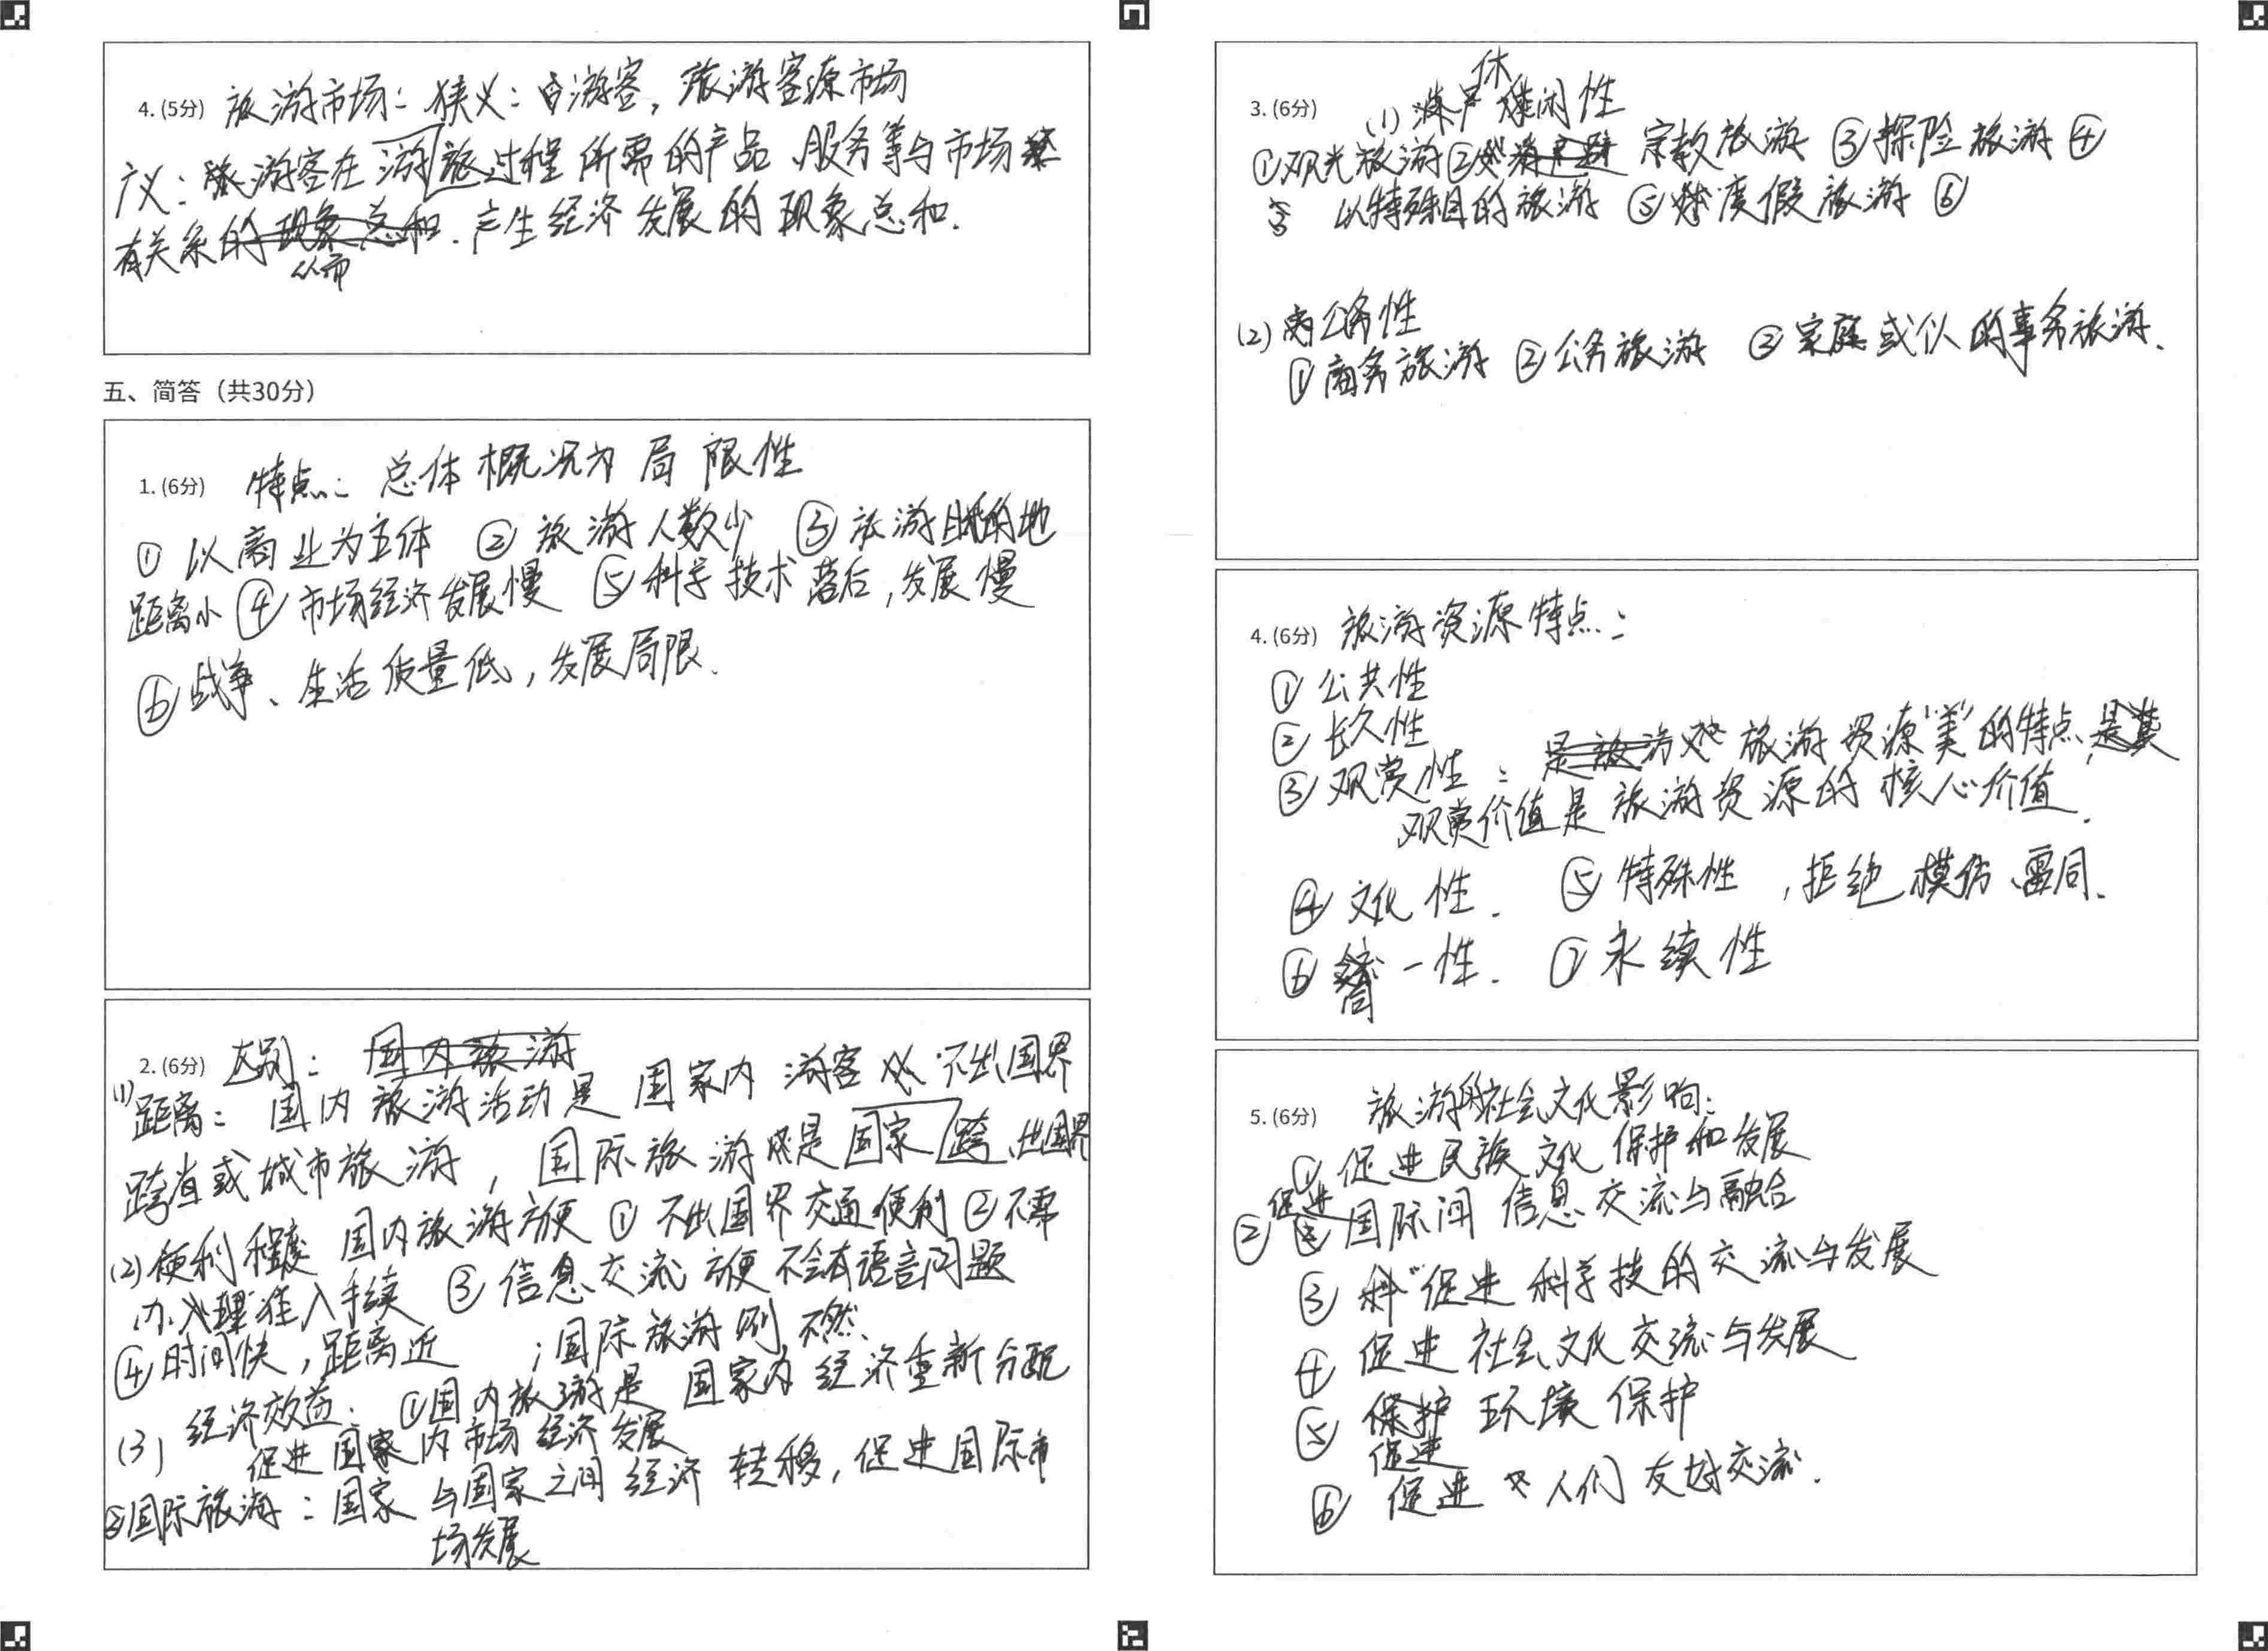 4. (5分) 旅游市场：狭义：旨游客，旅游客源市场
广义：旅游客在旅游过程所需的产品、服务等与市场
有关系的从而产生经济发展的现象总和.
五、简答（共30分）
1. (6分) 特点：总体概况为局限性
① 以商业为主体 ② 旅游人数少 ③ 旅游目的地
距离小 ④ 市场经济发展慢 ⑤ 科学技术落后，发展慢
⑥ 战争、生活质量低，发展局限.
2. (6分) 区别：
(1) 距离：国内旅游活动是国家内游客不出国界
跨省或城市旅游，国际旅游是跨国家、出国界
(2) 便利程度 国内旅游方便 ① 不出国界交通便利 ② 不需
办理准入手续 ③ 信息交流方便不会有语言问题
④ 时间快，距离近；国际旅游则不然.
(3) 经济效益：①国内旅游是国家内经济重新分配
促进国家内市场经济发展
②国际旅游：国家与国家之间经济转移，促进国际市
场发展
3. (6分) (1) 休闲性
①观光旅游② 宗教旅游 ③探险旅游 ④
以特殊目的旅游 ⑤度假旅游 ⑥
(2) 公务性
① 商务旅游 ② 公务旅游 ③ 家庭或个人的事务旅游.
4. (6分) 旅游资源特点：
① 公共性
② 长久性
③ 观赏性：旅游资源“美”的特点，
观赏价值是旅游资源的核心价值.
④ 文化性. ⑤ 特殊性，拒绝模仿、雷同.
⑥ 同一性. ⑦ 永续性
5. (6分) 旅游的社会文化影响：
① 促进民族文化保护和发展
② 促进国际间信息交流与融合
③ 促进科学技的交流与发展
④ 促进社会文化交流与发展
⑤ 促进环境保护
⑥ 促进人们友好交流.